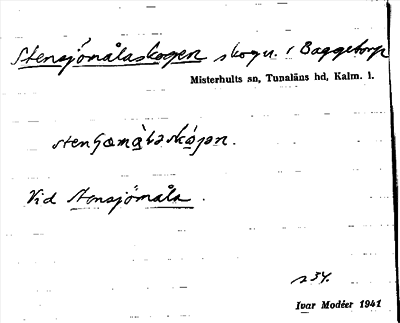 Stensjömålaskogen skogn. i Baggetorp
Misterhults sn, Tunaläns hd, Kalm. l.
Vid Stensjömåla.
s 34.
Ivar Modéer 1941